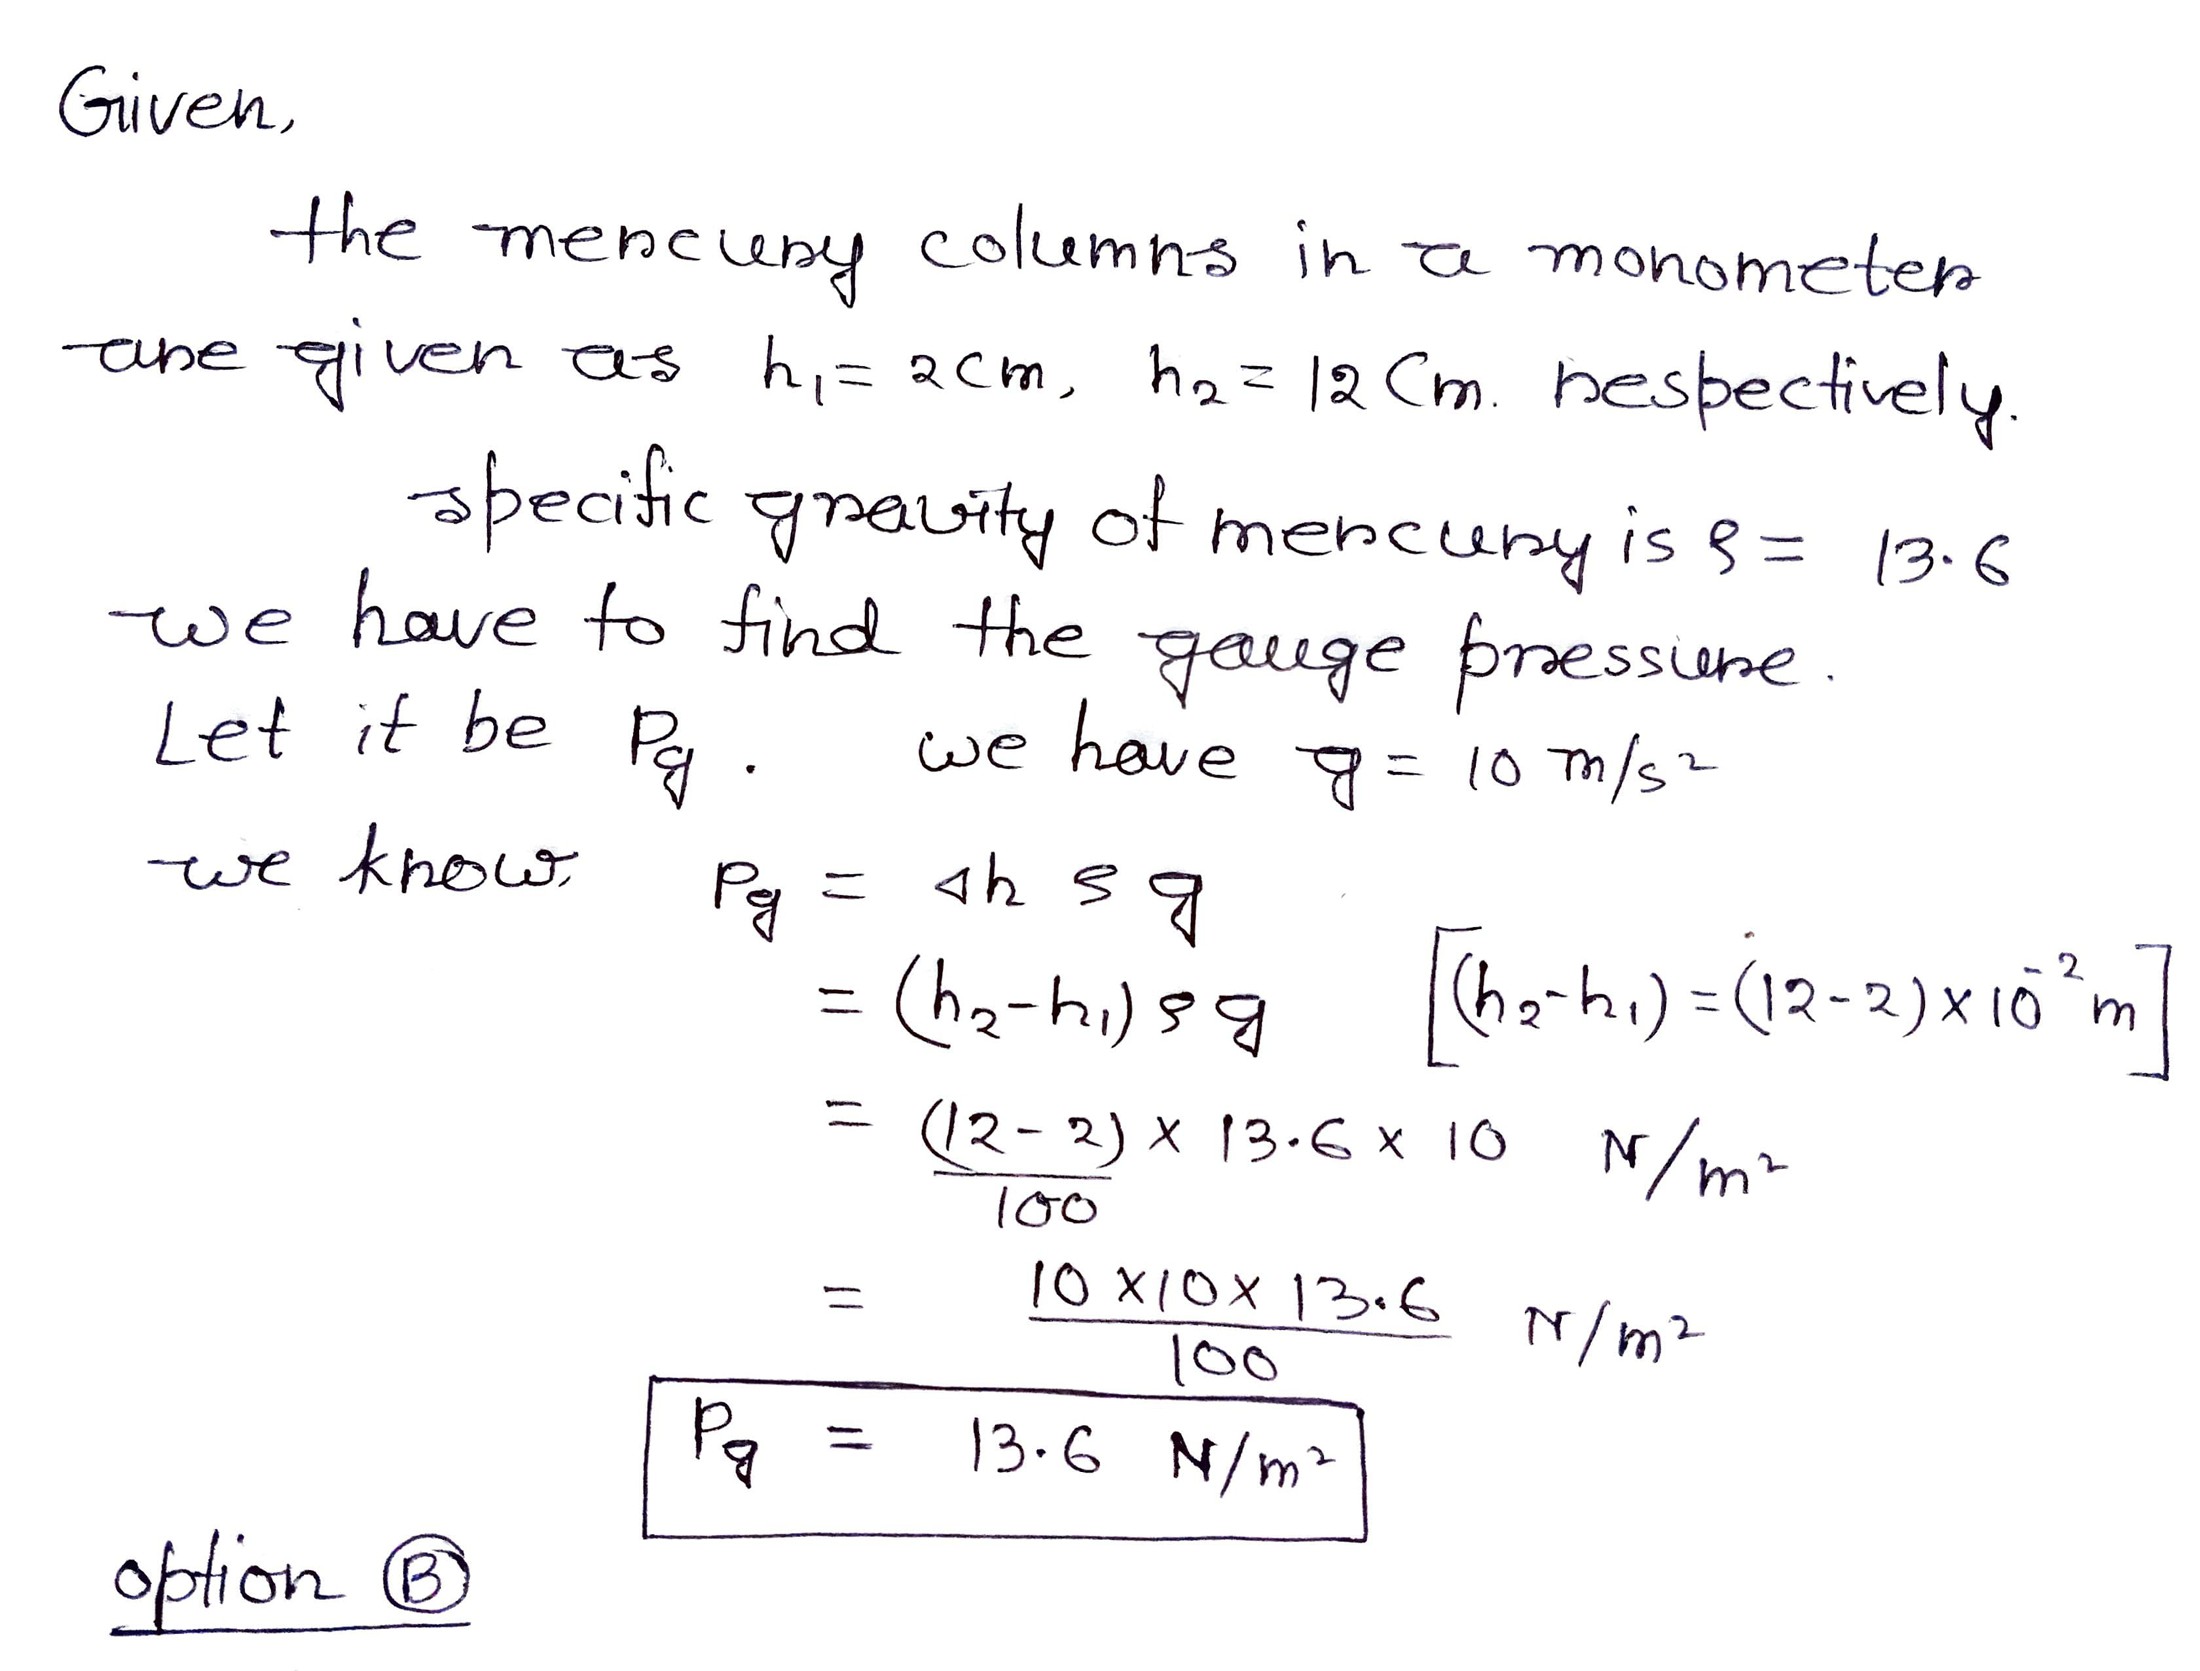 Given,
the mercury columns in a monometer
are given as h₁ = 2cm, h₂ = 12 Cm. respectively.
specific gravity of mercury is ρ = 13.6
we have to find the gauge pressure.
Let it be Pg. we have g = 10 m/s²
we know, Pg = Δh ρ g
= (h₂-h₁) ρ g [(h₂-h₁) = (12-2) × 10⁻² m]
= (12-2)/100 × 13.6 × 10 N/m²
= 10 × 10 × 13.6/100 N/m²
Pg = 13.6 N/m²
option Ⓑ